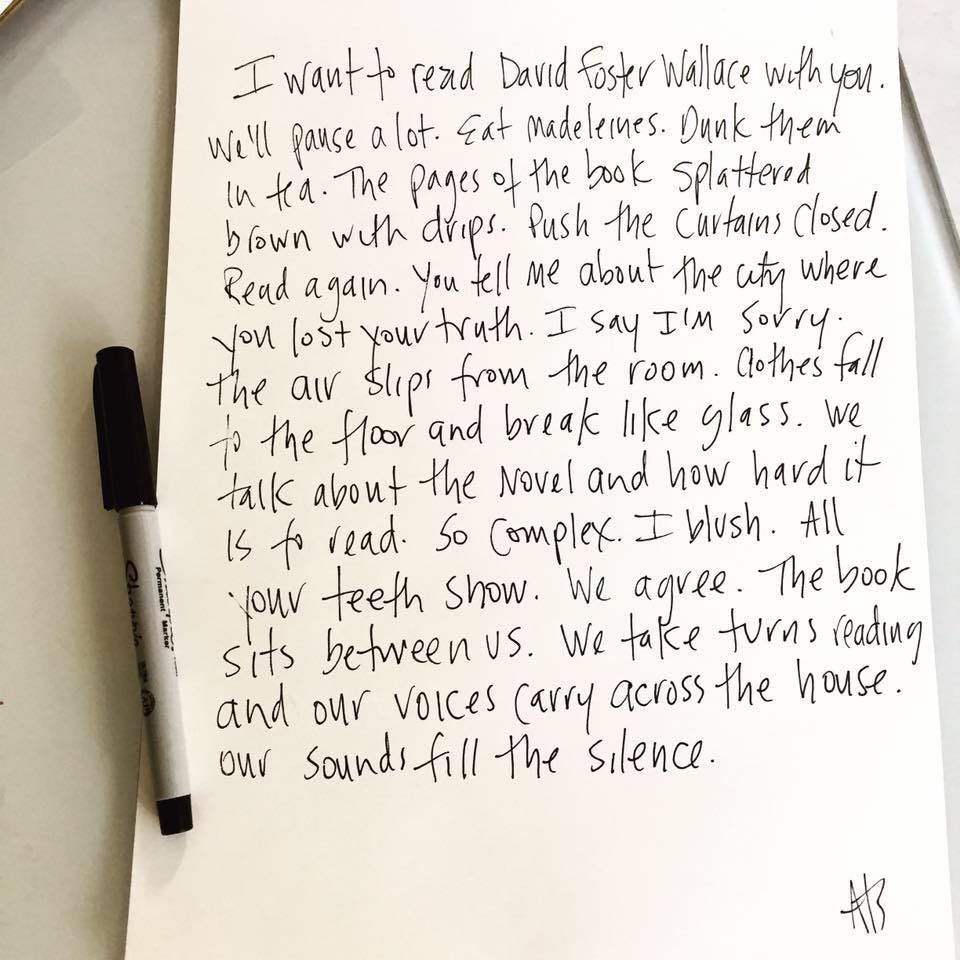 I want to read David Foster Wallace with you.
We'll pause a lot. Eat madeleines. Dunk them
in tea. The pages of the book splattered
brown with drips. Push the curtains closed.
Read again. You tell me about the city where
you lost your truth. I say I'm sorry.
The air slips from the room. Clothes fall
to the floor and break like glass. We
talk about the novel and how hard it
is to read. So complex. I blush. All
your teeth show. We agree. The book
sits between us. We take turns reading
and our voices carry across the house.
Our sounds fill the silence.
Permanent Marker